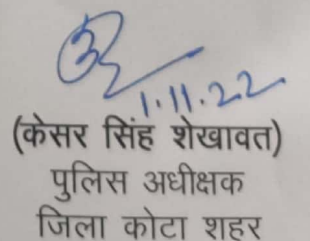 1.11.22
(केसर सिंह शेखावत)
पुलिस अधीक्षक
जिला कोटा शहर